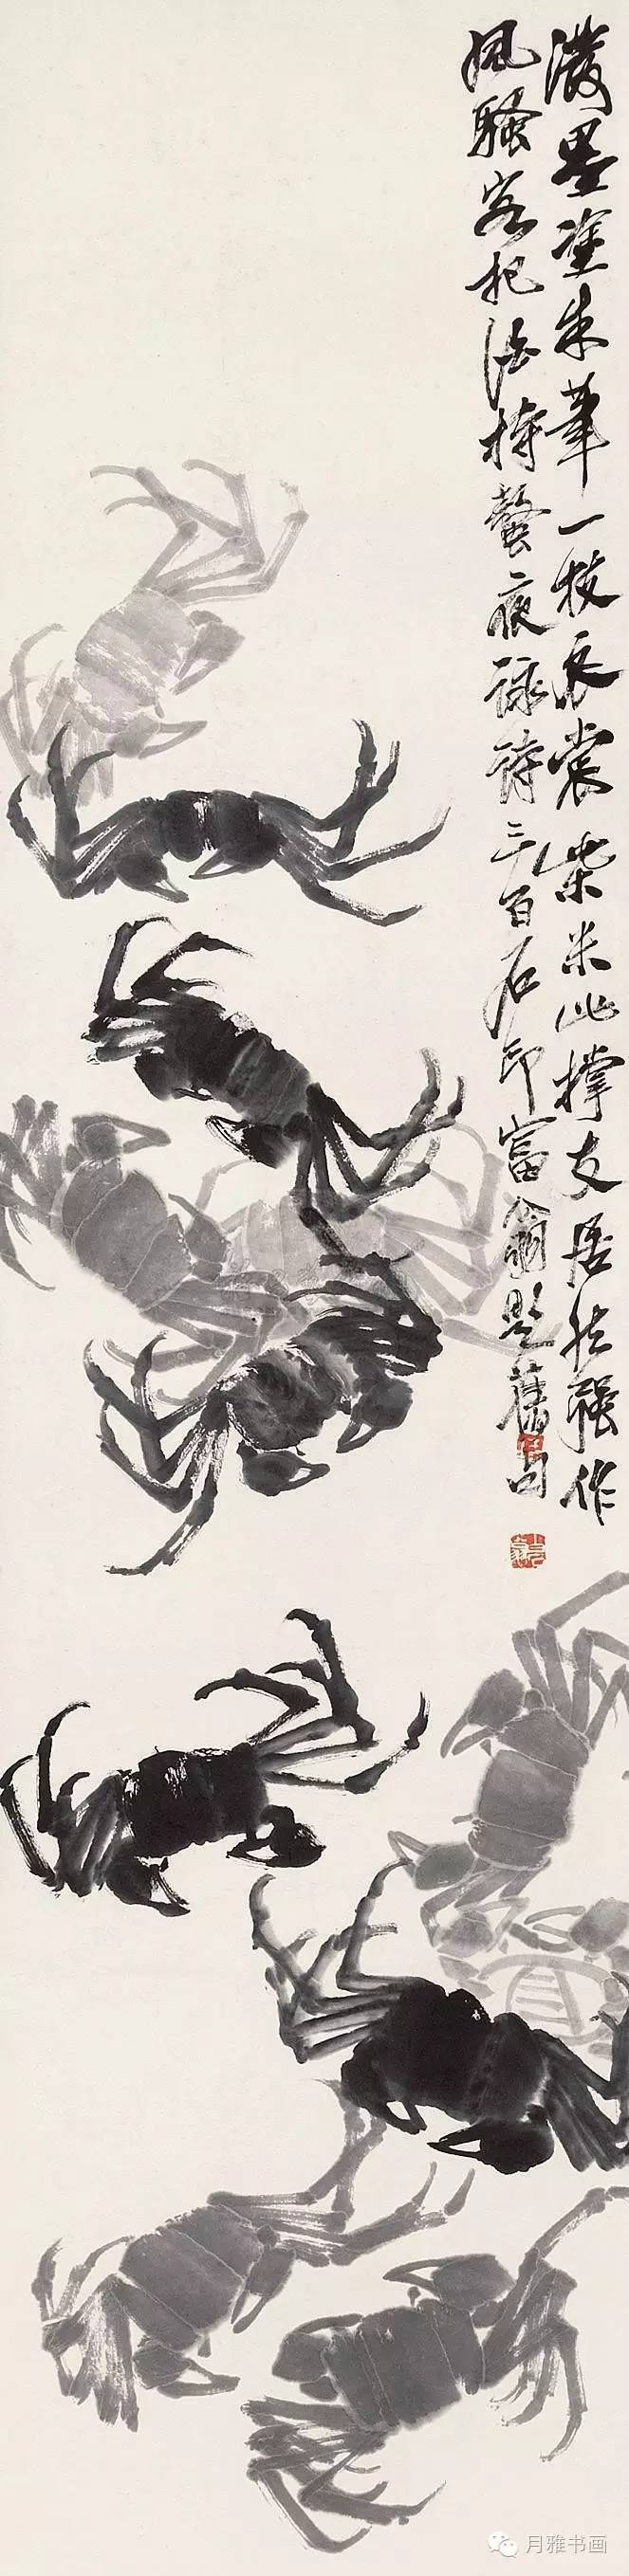 潑墨塗朱筆一枝衣裳柴米此撑支居然强作
風騷客把酒持螯夜詠詩三百石印富翁題舊句
月雅书画